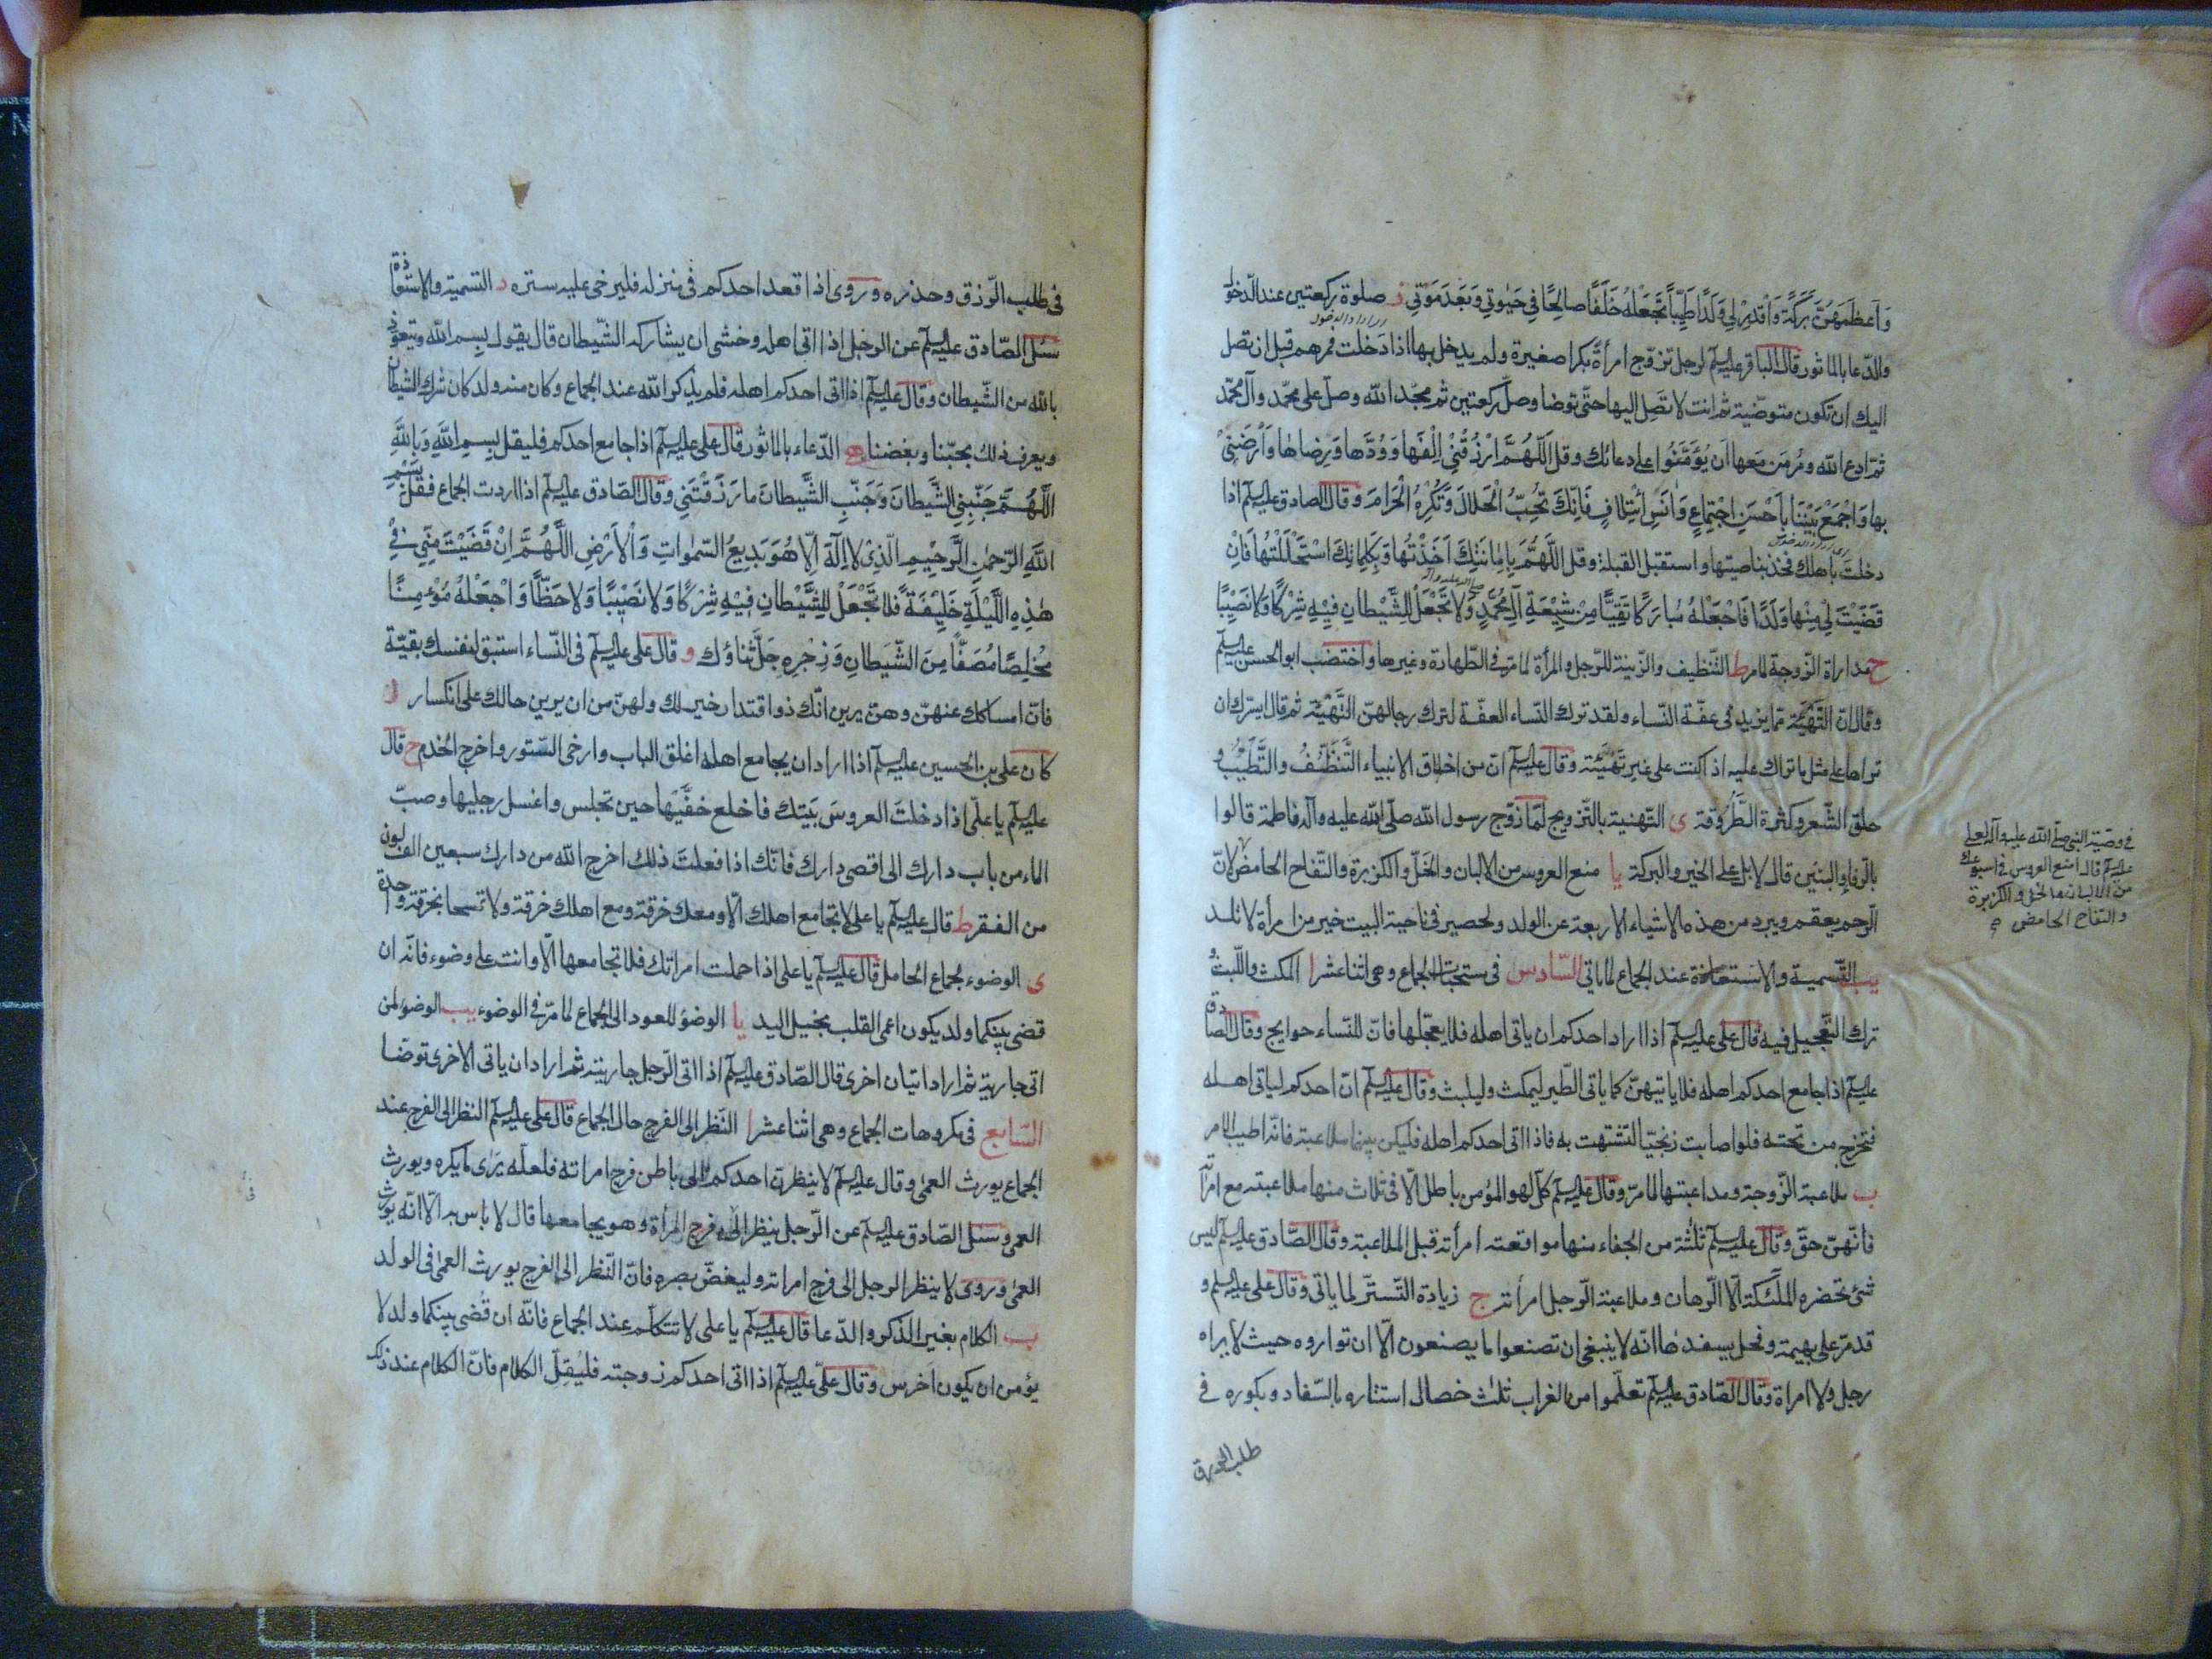 وَاَعظَمَهُنَّ بَرَكَةً وَاَقْدِرْلِي وَلَدًا طَيِّبًا تَجْعَلْهُ خَلَفًا صالِحًا فِي حَيوٰتِي وَبَعْدَ مَوْتِي ز صلوة ركعتين عند الدّخول
والدّعا بالماثور قال الباقر عليه السلم لرجل تزوّج امرأة بكرا صغيرة ولم يدخل بها اذا دخلت فمرهم قبل ان تصل
اى اراد الدخول
اليك ان تكون متوضّية ثم انت لا تصل اليها حتّى توضا وصلّ ركعتين ثم مجّد الله وصلّ على محمّد وآل محمّد
ثمّ ادع الله ومُر مَن مَعها اَن يُؤمّنُوا على دعائك وقل اَللّهُمَّ ارْزُقْنِي اِلْفَها وَوُدَّها وَرِضاها وَاَرْضِنِيْ
بها وَاجْمَعْ بَيْنَنا بِاَحْسَنِ اجْتِماعٍ وَاٰنَسِ اْئْتِلافٍ فَاِنَّكَ تُحِبُّ الْحَلالَ وَتُكْرِهُ الْحَرامَ وقال الصادق عليه السلم اذا
دخلت باهلك فخذ بناصيتها واستقبل القبلة وقل اَللّٰهُمَّ بِاَمانَتِكَ اَخَذْتُها وَبِكَلِماتِكَ اسْتَحْلَلْتُها فَاِنْ
اى اراد الدخول
قَضَيْتَ لِيْ مِنْها وَلَدًا فَاجْعَلْهُ مُبارَكًا تَقِيًّا مِنْ شِيْعَةِ آلِ مُحَمَّدٍ وَلا تَجْعَلْ لِلشَّيْطانِ فِيْهِ شِرْكًا وَلا نَصِيْبًا
صلى الله عليه واله
ح مداراة الزّوجة لما مر ط التّنظيف والزّينة للرّجل والمرأة لما مرّ فى الطّهارة وغيرها واختضب ابو الحسن عليه السلم
وقال انّ التَّهْيِئَة ممّا يزيد فى عفّة النّساء ولقد ترك النّساء العفّة لترك رجالهنّ التَّهْيِئَة ثم قال ايسّرك ان
تراها على مثل ما تراك عليه اذا كنت على غير تَهْيِئَة وقال عليه السلم انّ من اخلاق الانبياء التَّنَظُّفُ والتَّطَيُّبُ و
حلق الشّعر وكثرة الطَّرُوقة ى التّهنية بالتّزويج لمّا زوّج رسول الله صلّى الله عليه وآله فاطمة قالوا
بالرّفاءِ والبنين قال لا بل على الخير والبركة يا منع العروس من الالبان والخَلّ والكزبرة والتّفاح الحامض لانّ
الرّحم يعقم ويبرد من هذه الاشياء الاربعة عن الولد ولحصير فى ناحية البيت خير من امرأة لا تلد
يب التّسمية والاستعاذة عند الجماع لما ياتى السّادس فى مستحبّات الجماع وهى اثنا عشر ا المكث واللّبث و
ترك التّعجيل فيه قال على عليه السلم اذا اراد احدكم ان ياتى اهله فلا يعجّلها فانّ للنّساء حوايج وقال الصّادق
عليه السلم اذا جامع احدكم اهله فلا ياتيهنّ كما ياتى الطّير ليمكث وليلبث وقال عليه السلم انّ احدكم لياتى اهله
فتخرج من تحته فلو اصابت زنجيّا لتشبّثت به فاذا اتى احدكم اهله فليكن بينهما ملاعبة فانّه اطيب للامر
ب ملاعبة الزّوجة ومداعبتها لما مرّ وقال عليه السلم كلّ لهو المؤمن باطل الّا فى ثلاث منها ملاعبته مع امرأته
فانّهنّ حقّ وقال عليه السلم ثلٰثة من الجفاء منها مواقعته امرأته قبل الملاعبة وقال الصّادق عليه السلم ليس
شئ تحضره الملٰئكة الّا الرّهان وملاعبة الرّجل امرأته ج زيادة التّستّر لما ياتى وقال على عليه السلم و
قد مرّ على بهيمة وفحل يسفدها انّه لا ينبغى ان تصنعوا ما يصنعون الّا ان تواروه حيث لا يراه
رجل ولا امراة وقال الصّادق عليه السلم تعلّموا من الغراب ثلٰث خصال استتاره بالسّفاد وبكوره فى
طلب الرزق
فى وصيّة النبى صلّى الله عليه وآله لعلى
عليه السلم قال امنع العروس فى اسبوعك
من الالبان والخل والكزبرة
والتفاح الحامض
فى طلب الرّزق وحذره وروى اذا قعد احدكم فى منزله فليرخى عليه ستره د التسمية والاستعاذة
سئل الصّادق عليه السلم عن الرجل اذا اتى اهله وخشى ان يشاركه الشّيطان قال يقول بِسم الله ويتعوّذ
بالله من الشّيطان وقال عليه السلم اذا اتى احدكم اهله فلم يذكر الله عند الجماع وكان منه ولد كان شرك الشيطان
ويعرف ذلك بحبّنا وبغضنا ه الدّعاء بالماثور قال على عليه السلم اذا جامع احدكم فليقل بِسِم اللهِ وَبِاللهِ
اَللّٰهُمَّ جَنِّبْنِي الشَّيطانَ وَجَنِّبِ الشَّيطانَ ما رَزَقْتَنِي وقال الصّادق عليه السلم اذا اردت الجماع فقل بِسْمِ
اللّٰهِ الرّحمٰنِ الرَّحِيْمِ الّذِيْ لا اِلٰهَ اِلّا هُوَ بَدِيعُ السّمٰواتِ وَالْاَرْضِ اللّٰهُمَّ اِنْ قَضَيْتَ مِنِّي فِيْ
هٰذِهِ اللَّيْلَةِ خَلِيْفَةً فلا تَجْعَلْ لِلشَّيْطانِ فِيْهِ شِرْكًا وَلا نَصِيْبًا وَلا حَظًّا وَاجْعَلْهُ مُؤْمِنًا
مُخْلِصًا مُصَفًّا مِنَ الشّيَطانِ وَرِجْزِهِ جَلَّ ثَناؤُك و قال على عليه السلم فى النّساء استبق لنفسك بقيّة
فانّ امساكك عنهنّ وهنّ يرين انّك ذو اقتدار خير لك ولهنّ من ان يرين حالك على انكسار ز
كان على بن الحسين عليه السلم اذا اراد ان يجامع اهله اغلق الباب وارخى السّتور واخرج الخدم ح قال
عليه السلم يا علىّ اذا دخلتَ العروسَ بَيتك فاخلع خفَّيها حين تجلس واغسل رجليها وصبّ
الماء من باب دارك الى اقصى دارك فانّك اذا فعلتَ ذلك اخرج الله من دارك سبعين الف لون
من الفقر ط قال عليه السلم يا على لا تجامع اهلك الّا ومعك خرقة ومع اهلك خرقة ولا تمسحا بخرقة واحدة
ى الوضوء لجماع الحامل قال عليه السلم يا على اذا حملت امراتك فلا تجامعها الّا وانت على وضوء فانّه ان
قضى بينكما ولد يكون اعمى القلب بخيل اليد يا الوضؤ للعود الى الجماع لما مرّ فى الوضوء يب الوضؤ لمن
اتى جارية ثم اراد اتيان اخرى قال الصّادق عليه السلم اذا اتى الرّجل جاريته ثم اراد ان ياتى الاخرى توضّا
السّابع فى مكروهات الجماع وهى اثنا عشر ا النّظر الى الفرج حال الجماع قال على عليه السلم النظر الى الفرج عند
الجماع يورث العمىٰ وقال عليه السلم لا ينظرنّ احدكم الى باطن فرج امراته فلعلّه يَرٰى ما يكره ويورث
العمى وسئل الصّادق عليه السلم عن الرّجل ينظر الى فرج المراة وهو يجامعها قال لا باس به الّا انّه يورث
العمىٰ وروى لا ينظر الرجل الى فرج امراته وليغضّ بصره فانّ النّظر الى الفرج يورث العمىٰ فى الولد
ب الكلام بغير الذكر والدّعا قال عليه السلم يا على لا تتكلّم عند الجماع فانّه ان قُضى بينكما ولد لا
يؤمن ان يكون اَخرس وقال علىّ عليه السلم اذا اتى احدكم زوجته فليُقِلّ الكلام فانّ الكلام عند ذلك